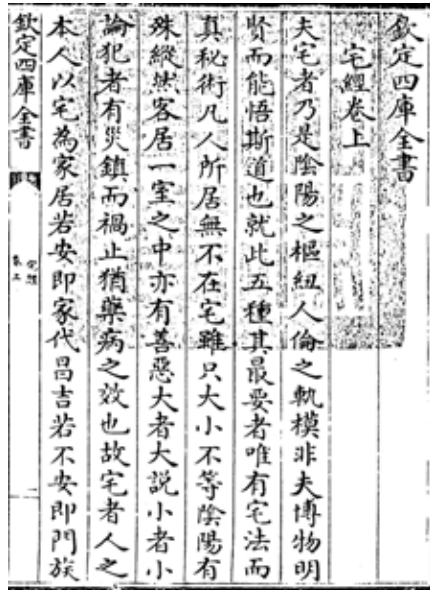 欽定四庫全書
宅經卷上
夫宅者乃是陰陽之樞紐人倫之軌模非夫博物明
賢而能悟斯道也就此五種其最要者唯有宅法而
真秘術凡人所居無不在宅雖只大小不等陰陽有
殊縱然客居一室之中亦有善惡大者大說小者小
論犯者有災鎮而禍止猶藥病之效也故宅者人之
本人以宅為家居若安即家代昌吉若不安即門族
欽定四庫全書
宅經
卷上
一